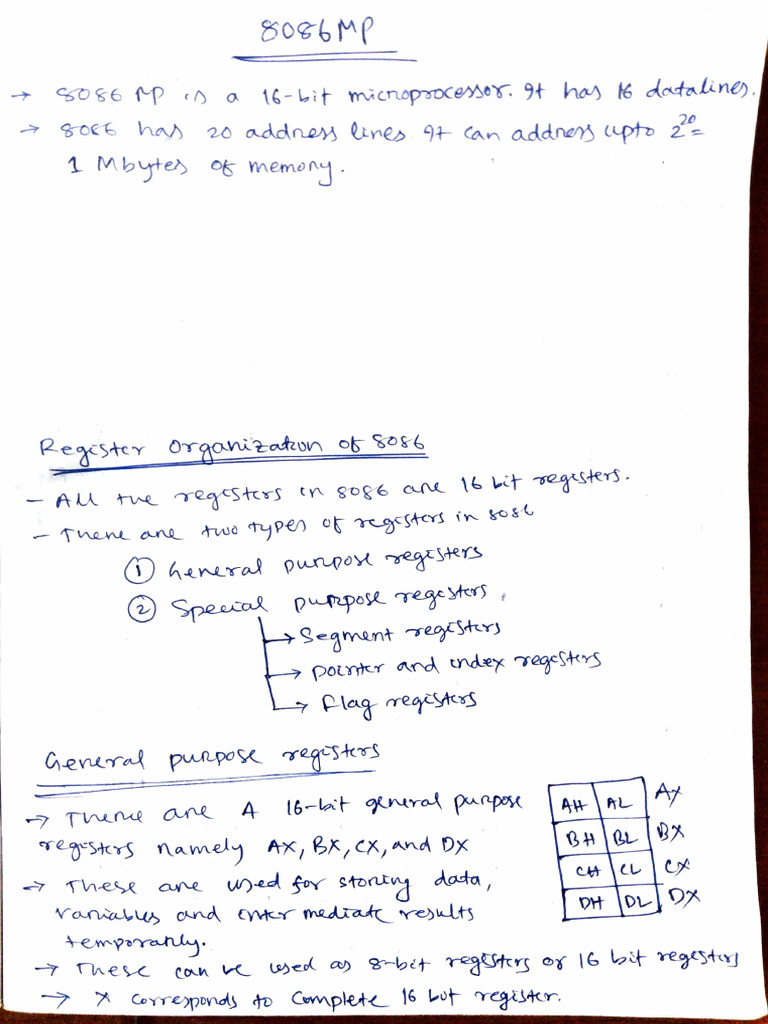 8086 MP
→ 8086 MP is a 16-bit microprocessor. It has 16 datalines.
→ 8086 has 20 address lines It can address upto 2^20 =
1 Mbytes of memory.
Register Organization of 8086
- All the registers in 8086 are 16 bit registers.
- There are two types of registers in 8086
① General purpose registers
② Special purpose registers
→ Segment registers
→ pointer and index registers
→ flag registers
General purpose registers
→ There are 4 16-bit general purpose
registers namely AX, BX, CX, and DX
→ These are used for storing data,
variables and intermediate results
temporarily.
→ These can be used as 8-bit registers or 16 bit registers
→ X corresponds to complete 16 bit register.
AH AL AX
BH BL BX
CH CL CX
DH DL DX